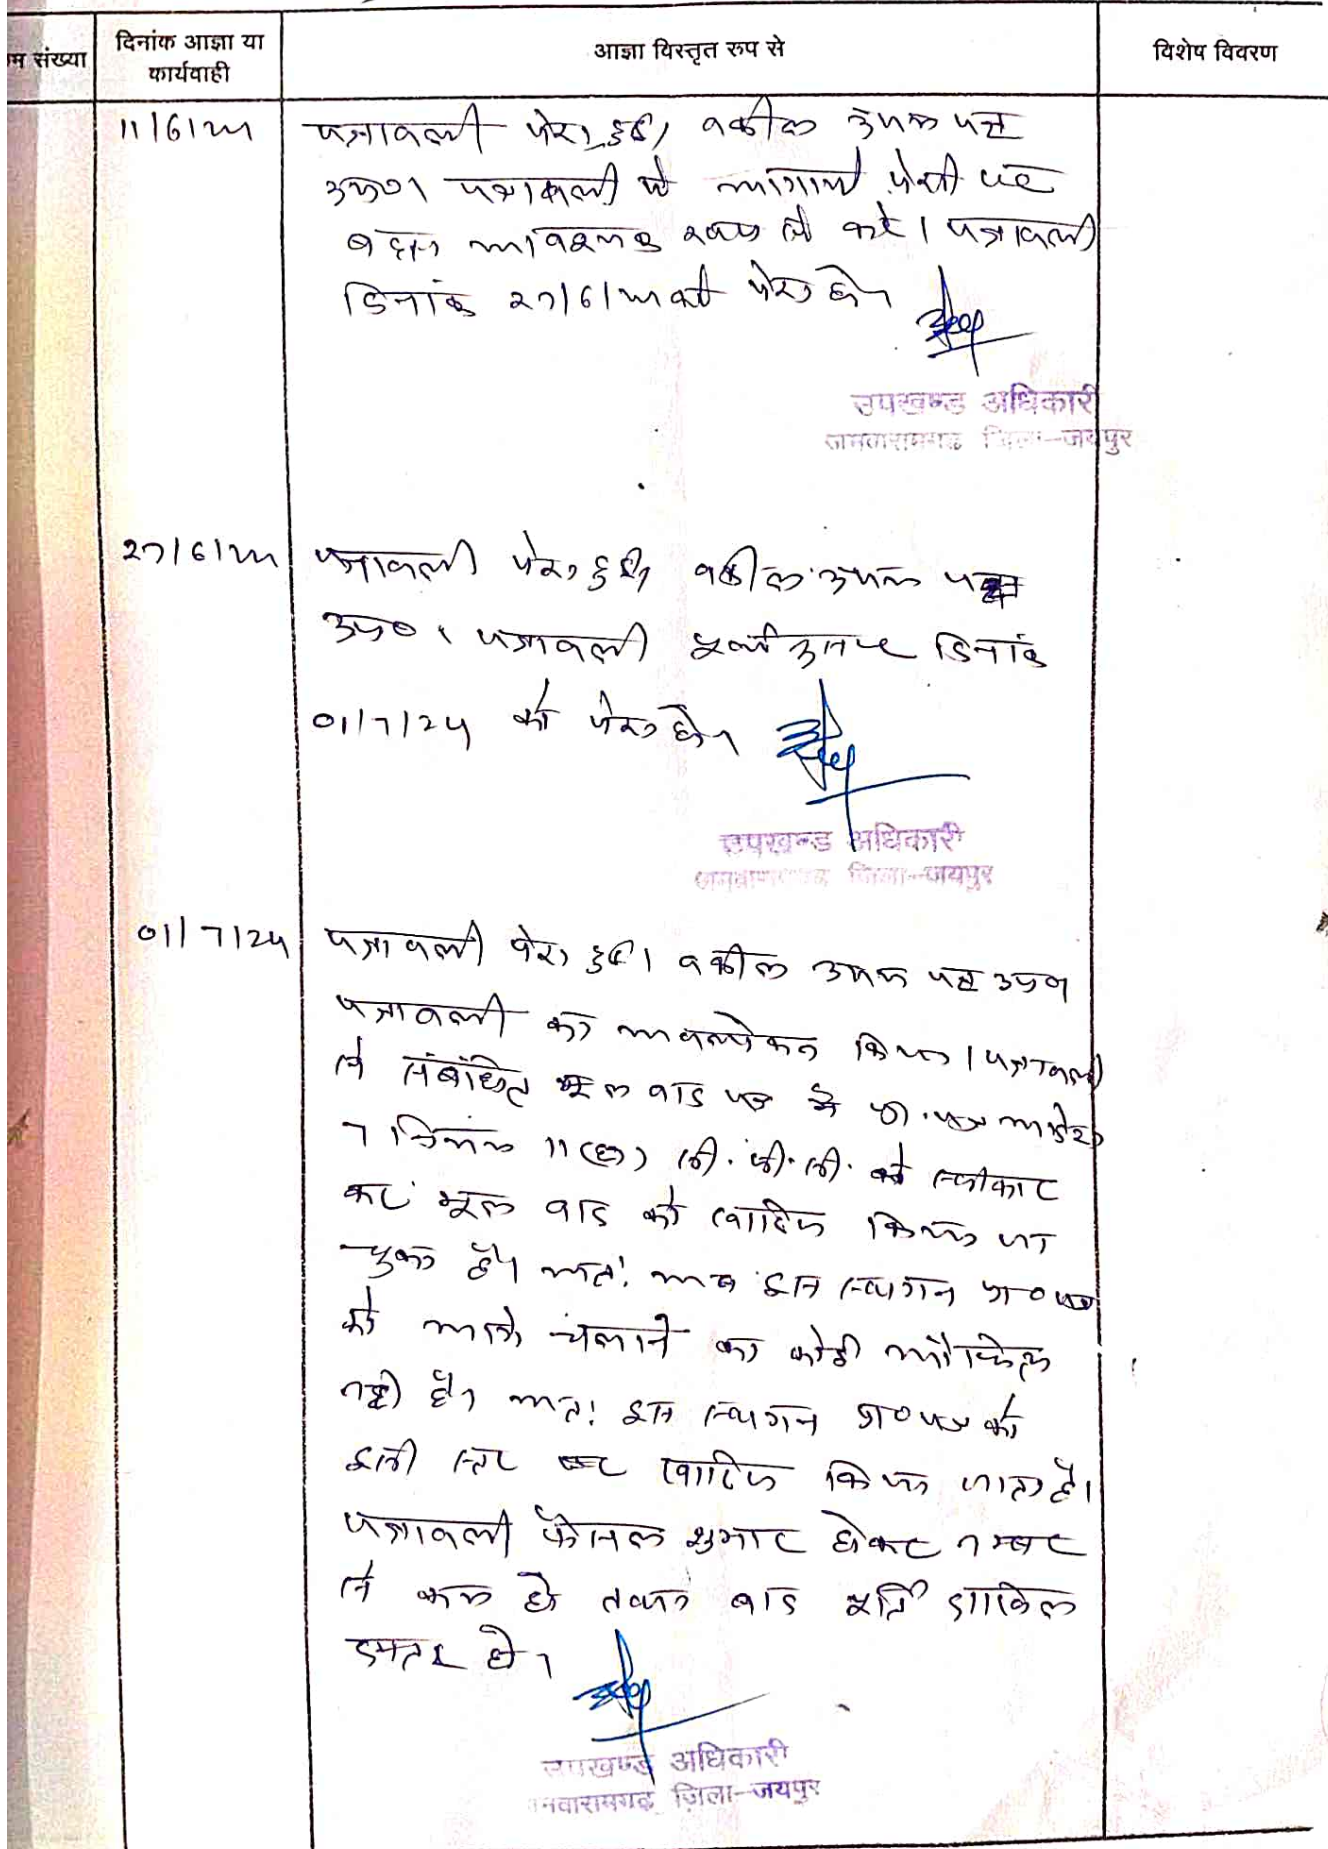 म संख्या
दिनांक आज्ञा या
कार्यवाही
आज्ञा विस्तृत रुप से
विशेष विवरण
11/6/24
पत्रावली पेश हुई, वकील उभय पक्ष
उप० पत्रावली में आगामी पेशी पर
बहस आवश्यक रूप से करे। पत्रावली
दिनांक 27/6/24 को पेश हो।
उपखण्ड अधिकारी
जमवारामगढ जिला-जयपुर
27/6/24
पत्रावली पेश हुई, वकील उभय पक्ष
उप०। पत्रावली दिनांक
01/7/24 को पेश हो।
उपखण्ड अधिकारी
जमवारामगढ जिला-जयपुर
01/7/24
पत्रावली पेश हुई। वकील उभय पक्ष उप०
पत्रावली का अवलोकन किया। पत्रावली
से संबंधित मूल वाद पत्र में प्रा.पत्र आदेश
7 नियम 11(घ) सी.पी.सी. को स्वीकार
कर मूल वाद को खारिज किया जा
चुका है। अतः अब इस स्थगन प्रा०पत्र
को आगे चलाने का कोई औचित्य
नही है। अतः इस स्थगन प्रा०पत्र को
इसी स्तर पर खारिज किया जाता है।
पत्रावली फैसल शुमार होकर नम्बर
से कम हो दाखिल
दफ्तर हो।
उपखण्ड अधिकारी
जमवारामगढ जिला-जयपुर